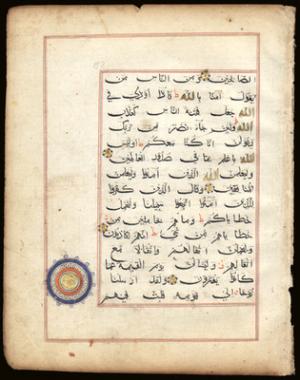 الصالحين ومن الناس من
يقول آمنا بالله فاذا أوذي في
الله جعل فتنة الناس كعذاب
الله ولئن جاء نصر من ربك
ليقولن انا كنا معكم أوليس
الله باعلم بما في صدور العالمين
وليعلمن الله الذين آمنوا وليعلمن
المنافقين وقال الذين كفروا
للذين آمنوا اتبعوا سبيلنا ولنحمل
خطاياكم وما هم بحاملين من
خطاياهم من شيء انهم لكاذبون
وليحملن اثقالهم واثقالا مع
اثقالهم وليسئلن يوم القيمة عما
كانوا يفترون ولقد ارسلنا
نوحا الى قومه فلبث فيهم